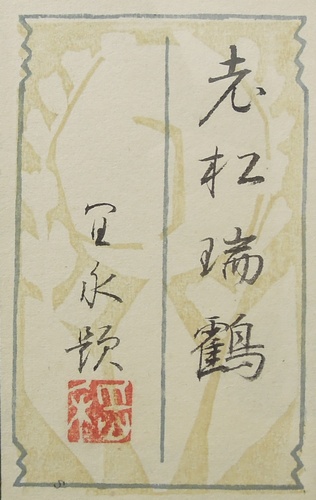 老松瑞鶴
宜永題